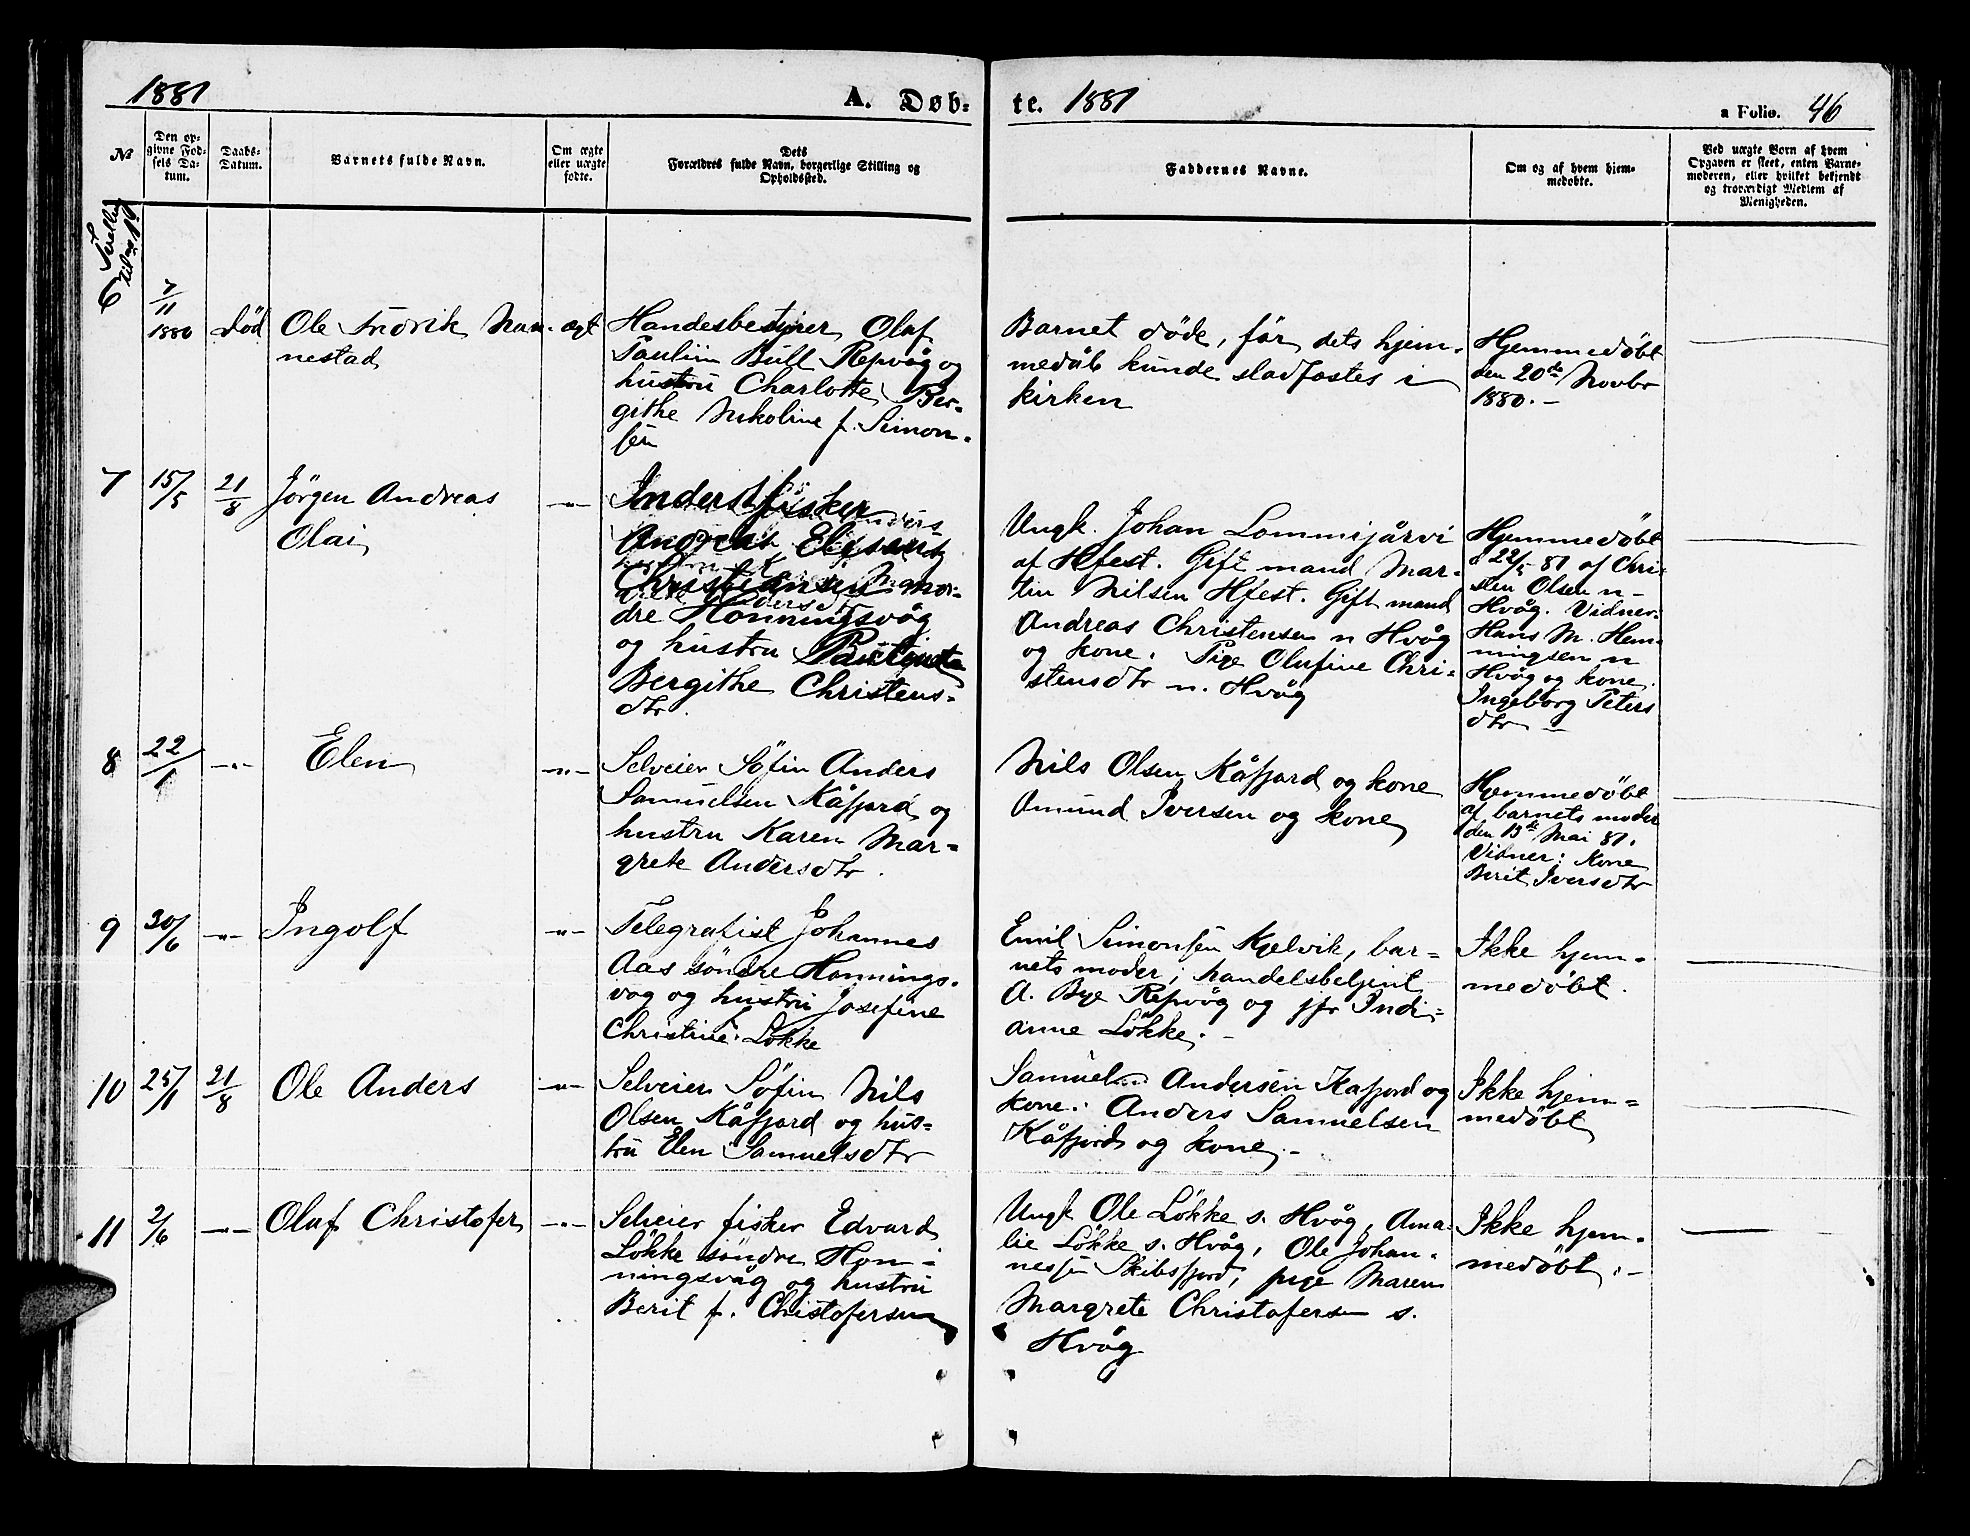 1881
A. Døb-
te. 1881
a Folio. 46
№
Den op-
givne Fød-
sels Da-
tum.
Daabs-
Datum.
Barnets fulde Navn.
Om ægte
eller uægte
fødte.
Dets
Forældres fulde Navn, borgerlige Stilling og
Opholdssted.
Faddernes Navne.
Om og af hvem hjem-
medøbte.
Ved uægte Born af hvem
Opgaven er skeet, enten Barne-
moderen, eller hvilket bekjendt
og troværdigt Medlem af
Menigheden.
6
7/11
1880
død
Ole Fridrik Nan-
nestad
ægt
Handesbestyrer Olaf
Pauliin Bull Repvåg og
hustru Charlotte Ber-
githe Nikoline f. Simon-
sen
Barnet døde, før dets hjem-
medåb kunde stadfæstes i
kirken
Hjemmedøbt
den 20de Novbr
1880.-
7
15/5
21/8
Jörgen Andreas
Olai
-"-
Inderst fisker
Andreas
Christiansen nor-
dre Honningsvåg
og hustru
Bergithe Christens-
dtr.
Ungk. Johan Lommijårvi
af Hfest. Gift mand Mar-
tin Nilsen Hfest. Gift mand
Andreas Christensen n Hvåg
og kone. Pige Olufine Chri-
stensdtr n. Hvåg
Hjemmedöbt
d 22/5 81 af Chri-
sten Olsen n-
Hvåg. Vidner:
Hans M. Hem-
mingsen n
Hvåg og kone
Ingeborg Peters
dtr -
8
22/1
-"-
Elen
-"-
Selveier Söfin Anders
Samuelsen Kåfjord og
hustru Karen Mar-
grete Andersdtr.
Nils Olsen Kåfjord og kone
Amund Iversen og kone
Hjemmedöbt
af barnets moder
den 13de Mai 81.
Vidner: Kone
Berit Iversdtr
9
30/6
-"-
Ingolf
-"-
Telegrafist Johannes
Aas söndre Honnings-
vog og hustru Josefine
Christine f. Løkke
Emil Simonsen Kjelvik, bar-
nets moder; handelsbetjent
A. Bye Repvåg og jfr Indi-
anne Løkke.-
Ikke hjem-
medöbt.
10
25/1
21/8
Ole Anders
-"-
Selveier Söfin Nils
Olsen Kåfjord og hus-
tru Elen Samuelsdtr
Samuel Andersen Kafjord og
kone. Anders Samuelsen
Kåfjord og kone.-
Ikke hjem-
medöbt
11
2/6
-"-
Oluf Christofer
-"-
Selveier fisker Edvard
Løkke söndre Hon-
ningsvåg og hustru
Berit f. Christofersen
Ungk Ole Løkke s. Hvåg, Ama-
lie Løkke s. Hvåg, Ole Johan-
nessen Skibsfjord, pige Maren
Margrete Christofersen s.
Hvåg
Ikke hjem-
medöbt.-